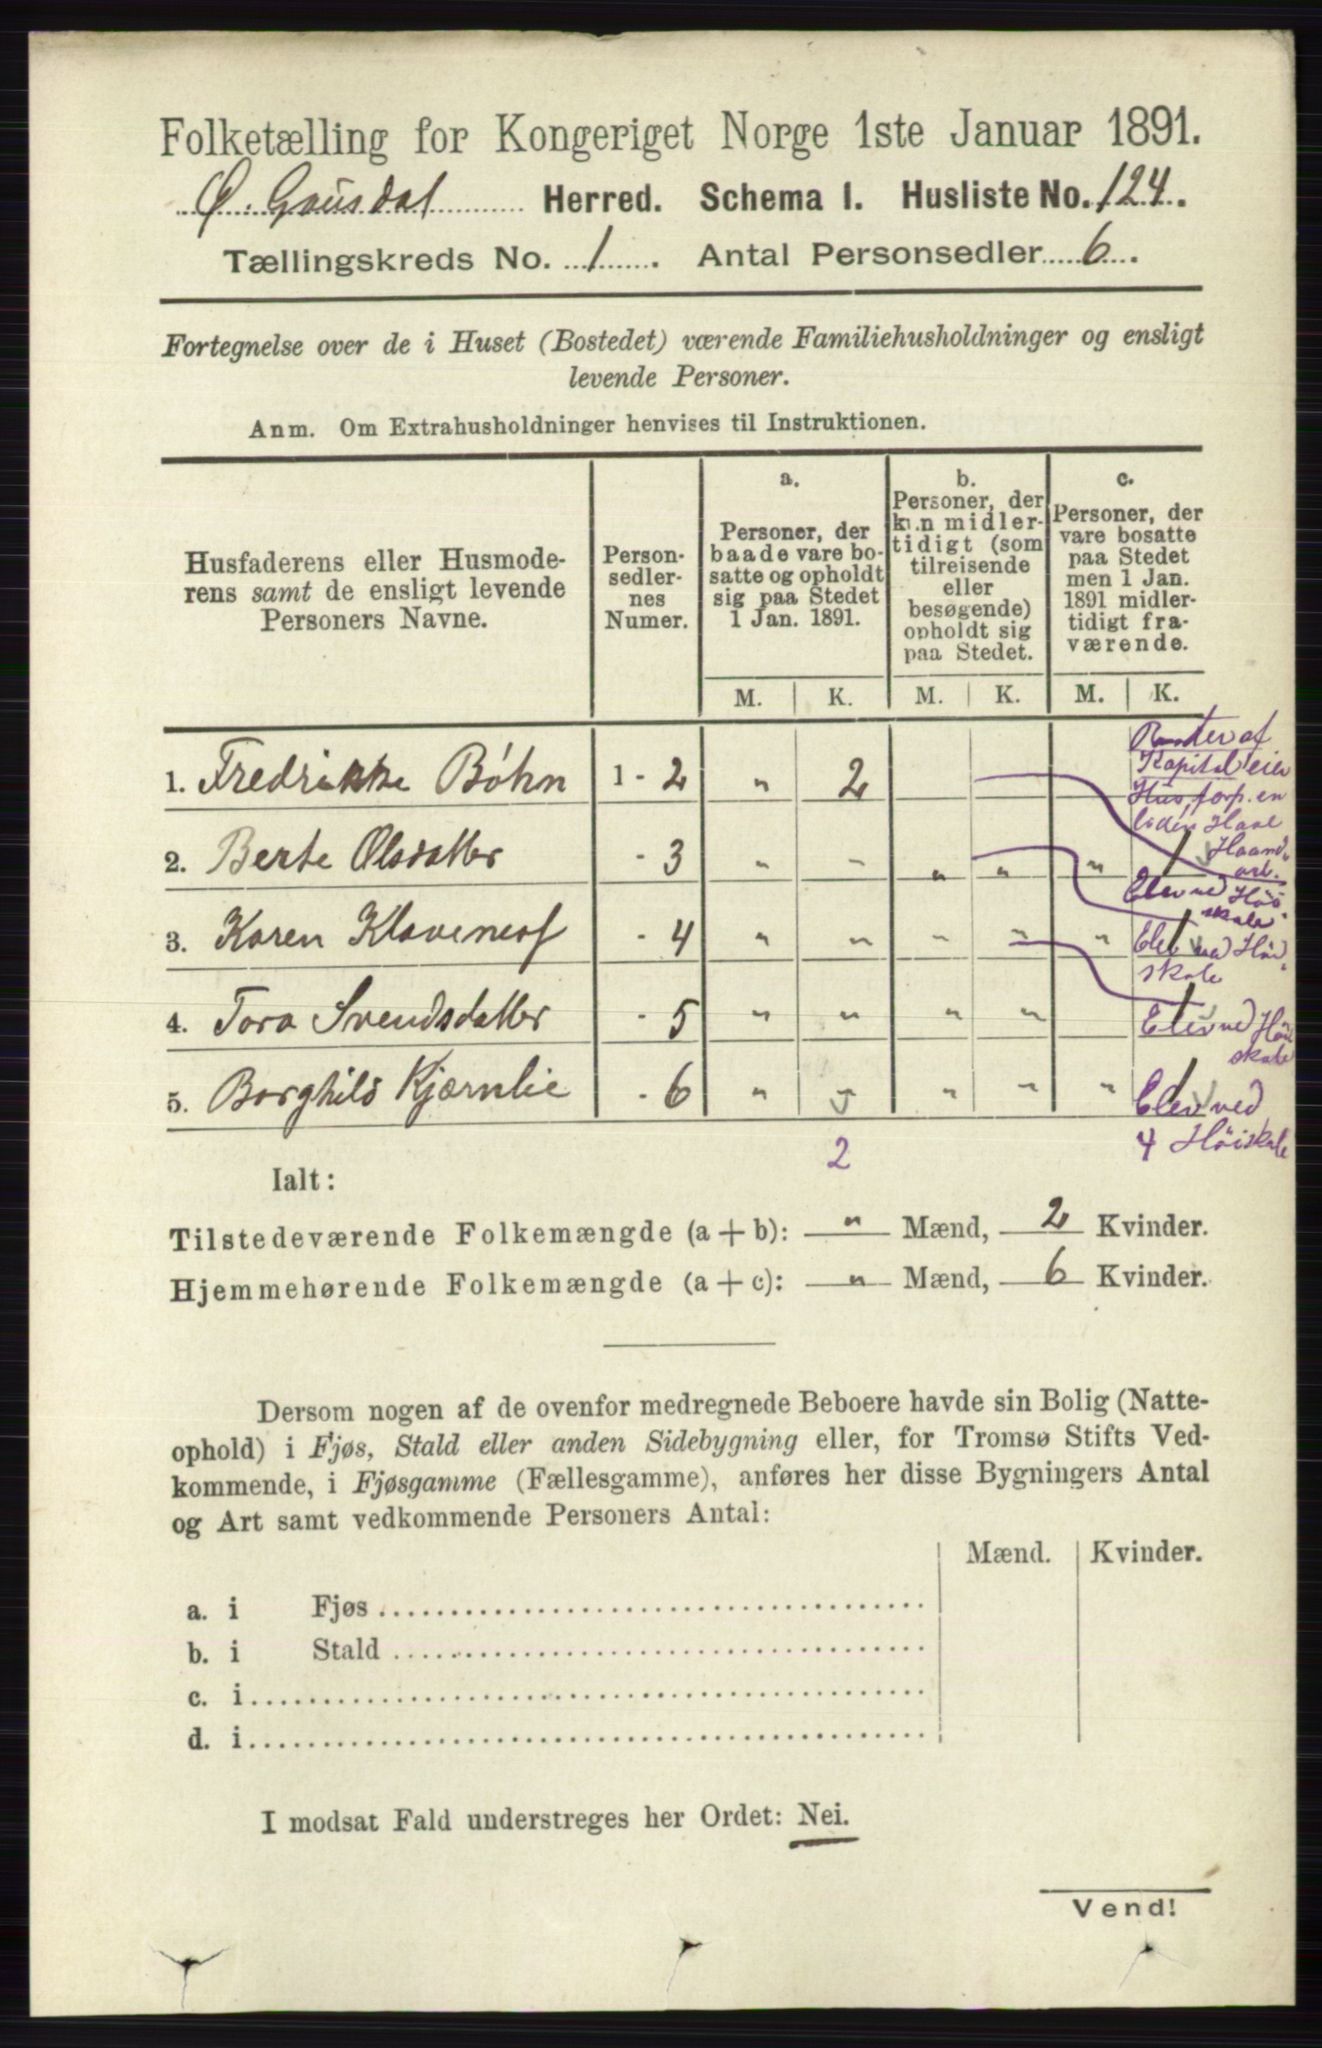 Folketælling for Kongeriget Norge 1ste Januar 1891.
Ø. Gausdal Herred. Schema 1. Husliste No. 124.
Tællingskreds No. 1. Antal Personsedler 6.
Fortegnelse over de i Huset (Bostedet) værende Familiehusholdninger og ensligt
levende Personer.
Anm. Om Extrahusholdninger henvises til Instruktionen.
Husfaderens eller Husmode-
rens samt de ensligt levende
Personers Navne.
Person-
sedler-
nes
Numer.
a.
Personer, der
baade vare bo-
satte og opholdt
sig paa Stedet
1 Jan. 1891.
b.
Personer, der
kun midler-
tidigt (som
tilreisende
eller
besøgende)
opholdt sig
paa Stedet.
c.
Personer, der
vare bosatte
paa Stedet
men 1 Jan.
1891 midler-
tidigt fra-
værende.
M. K. M. K. M. K.
1. Fredrikke Bøhn 1 - 2 " 2
Kapitaleier
Hus, forp. en
liden Have
Haand.
arb.
2. Berte Olsdatter - 3 " - " " " 1
Elev ved Høi
skole
3. Karen - 4 " " " " " 1
Elev ved Høi
skole
4. Tora Svendsdatter - 5 " " " " 1
Elev ved Høi
skole
5. Borghild Kjærnlie - 6 " " " " " 1
Elev ved
Høiskole
2 4
Ialt:
Tilstedeværende Folkemængde (a + b): " Mænd, 2 Kvinder.
Hjemmehørende Folkemængde (a + c): " Mænd, 6 Kvinder.
Dersom nogen af de ovenfor medregnede Beboere havde sin Bolig (Natte-
ophold) i Fjøs, Stald eller anden Sidebygning eller, for Tromsø Stifts Ved-
kommende, i Fjøsgamme (Fællesgamme), anføres her disse Bygningers Antal
og Art samt vedkommende Personers Antal:
Mænd. Kvinder.
a. i Fjøs
b. i Stald
c. i
d. i
I modsat Fald understreges her Ordet: Nei.
Vend!